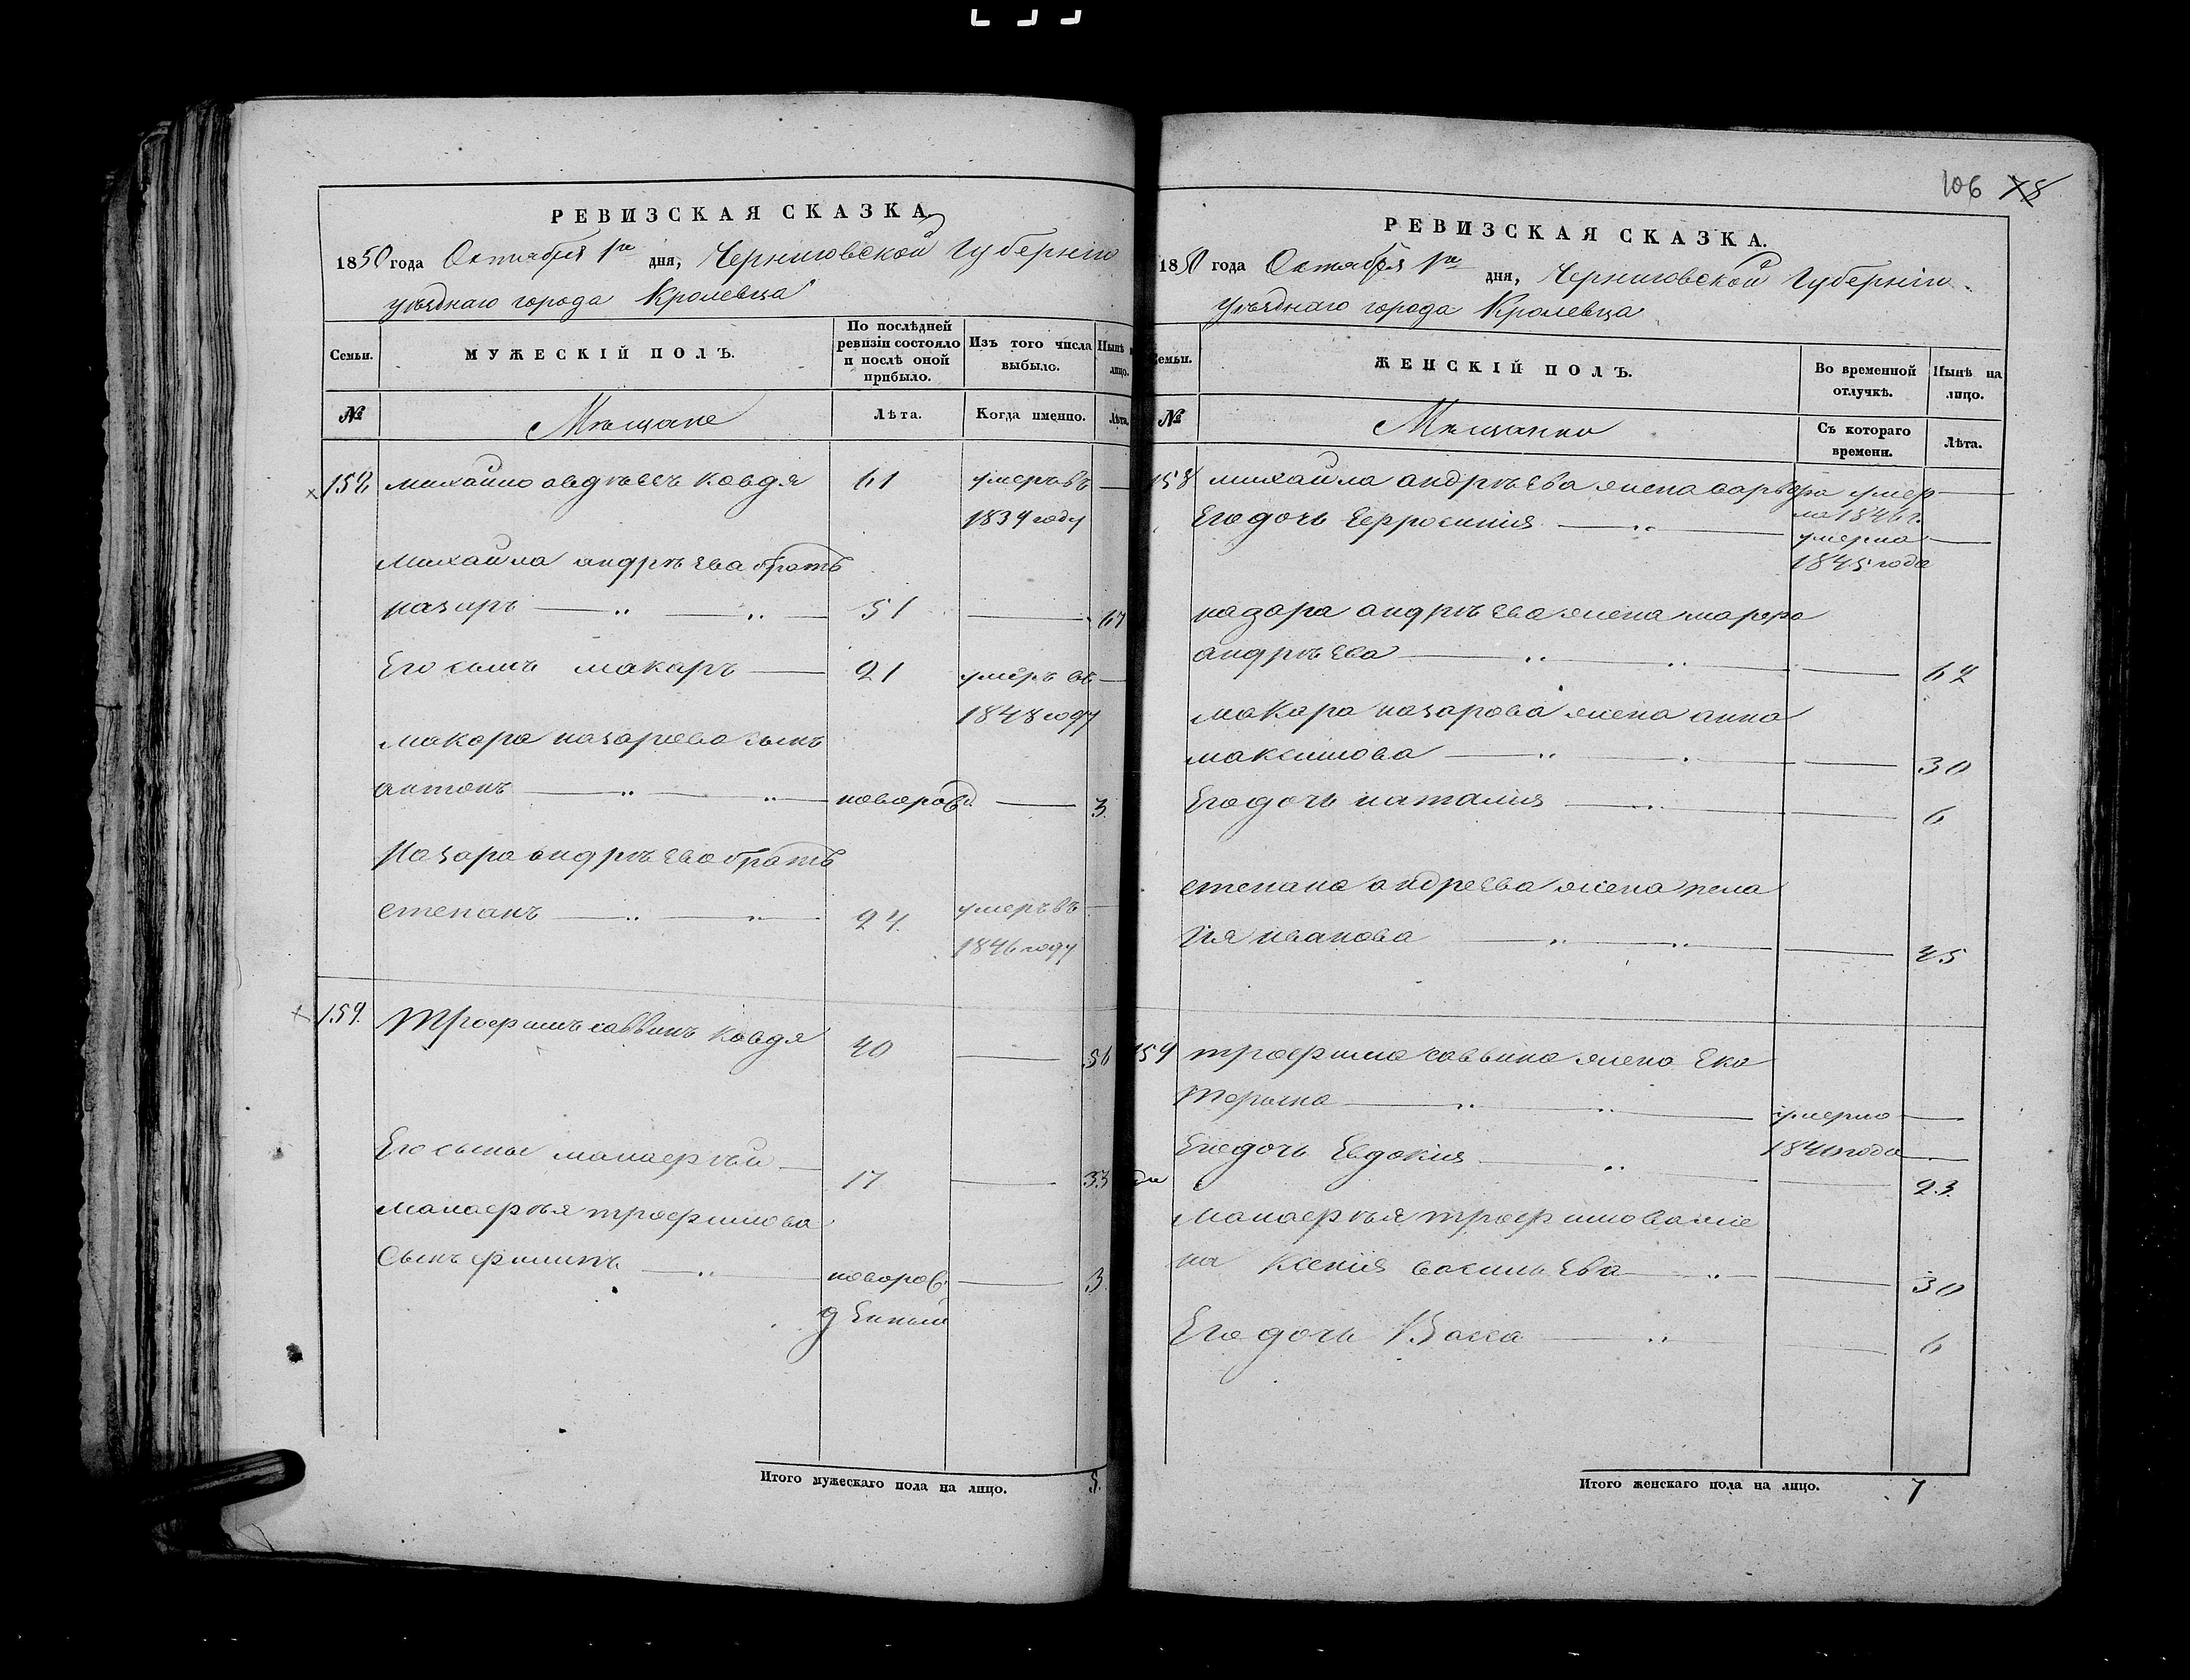 РЕВИЗСКАЯ СКАЗКА.
1850 года Октября 1го дня, Черниговской Губерніи
уѣзднаго города Кролевца
Семьи. МУЖЕСКІЙ ПОЛЪ. По послѣдней ревизіи состояло и послѣ оной прибыло. Изъ того числа выбыло. Нынѣ лицо.
№ Мѣщане Лѣта. Когда именно. Лѣта.
158 михайло андрѣевъ ковдя 61 умеръ въ
1839 году
Михайла андрѣева братъ
назаръ 51 67
Его сынъ макаръ 21 умеръ въ
1848 году
макара назарова сынъ
антонъ новорожд 3
Назара андрѣева братъ
степанъ 24. умеръ въ
1846 году
159. Трофимъ саввинъ ковдя 40 56
Его сынъ манасрѣй 17 33
манасрѣя трофимова
Сынъ филипъ новорож 3
денный
Итого мужескаго пола на лицо. 5.
106 78
РЕВИЗСКАЯ СКАЗКА.
1850 года Октября 1го дня, Черниговской Губерніи
уѣзднаго города Кролевца
Семьи. ЖЕНСКІЙ ПОЛЪ. Во временной отлучкѣ. Нынѣ на лицо.
№ Мѣщанки Съ котораго времени. Лѣта.
158 михайла андрѣева жена варвара умер
ла 1846 г.
Его дочь Ефросинія умерла
1845 года
назара андрѣева жена марфа
андрѣева 62
макара назарова жена анна
максимова 30
Его дочь наталія 6
степана андреева жена пела
гія иванова 45
159 трофима саввина жена Ека
терина умерла
1840 года
Его дочь Евдокія 23
манасрѣя трофимова же
на Ксенія васильева 30
Его дочь Васса 6
Итого женскаго пола на лицо. 7